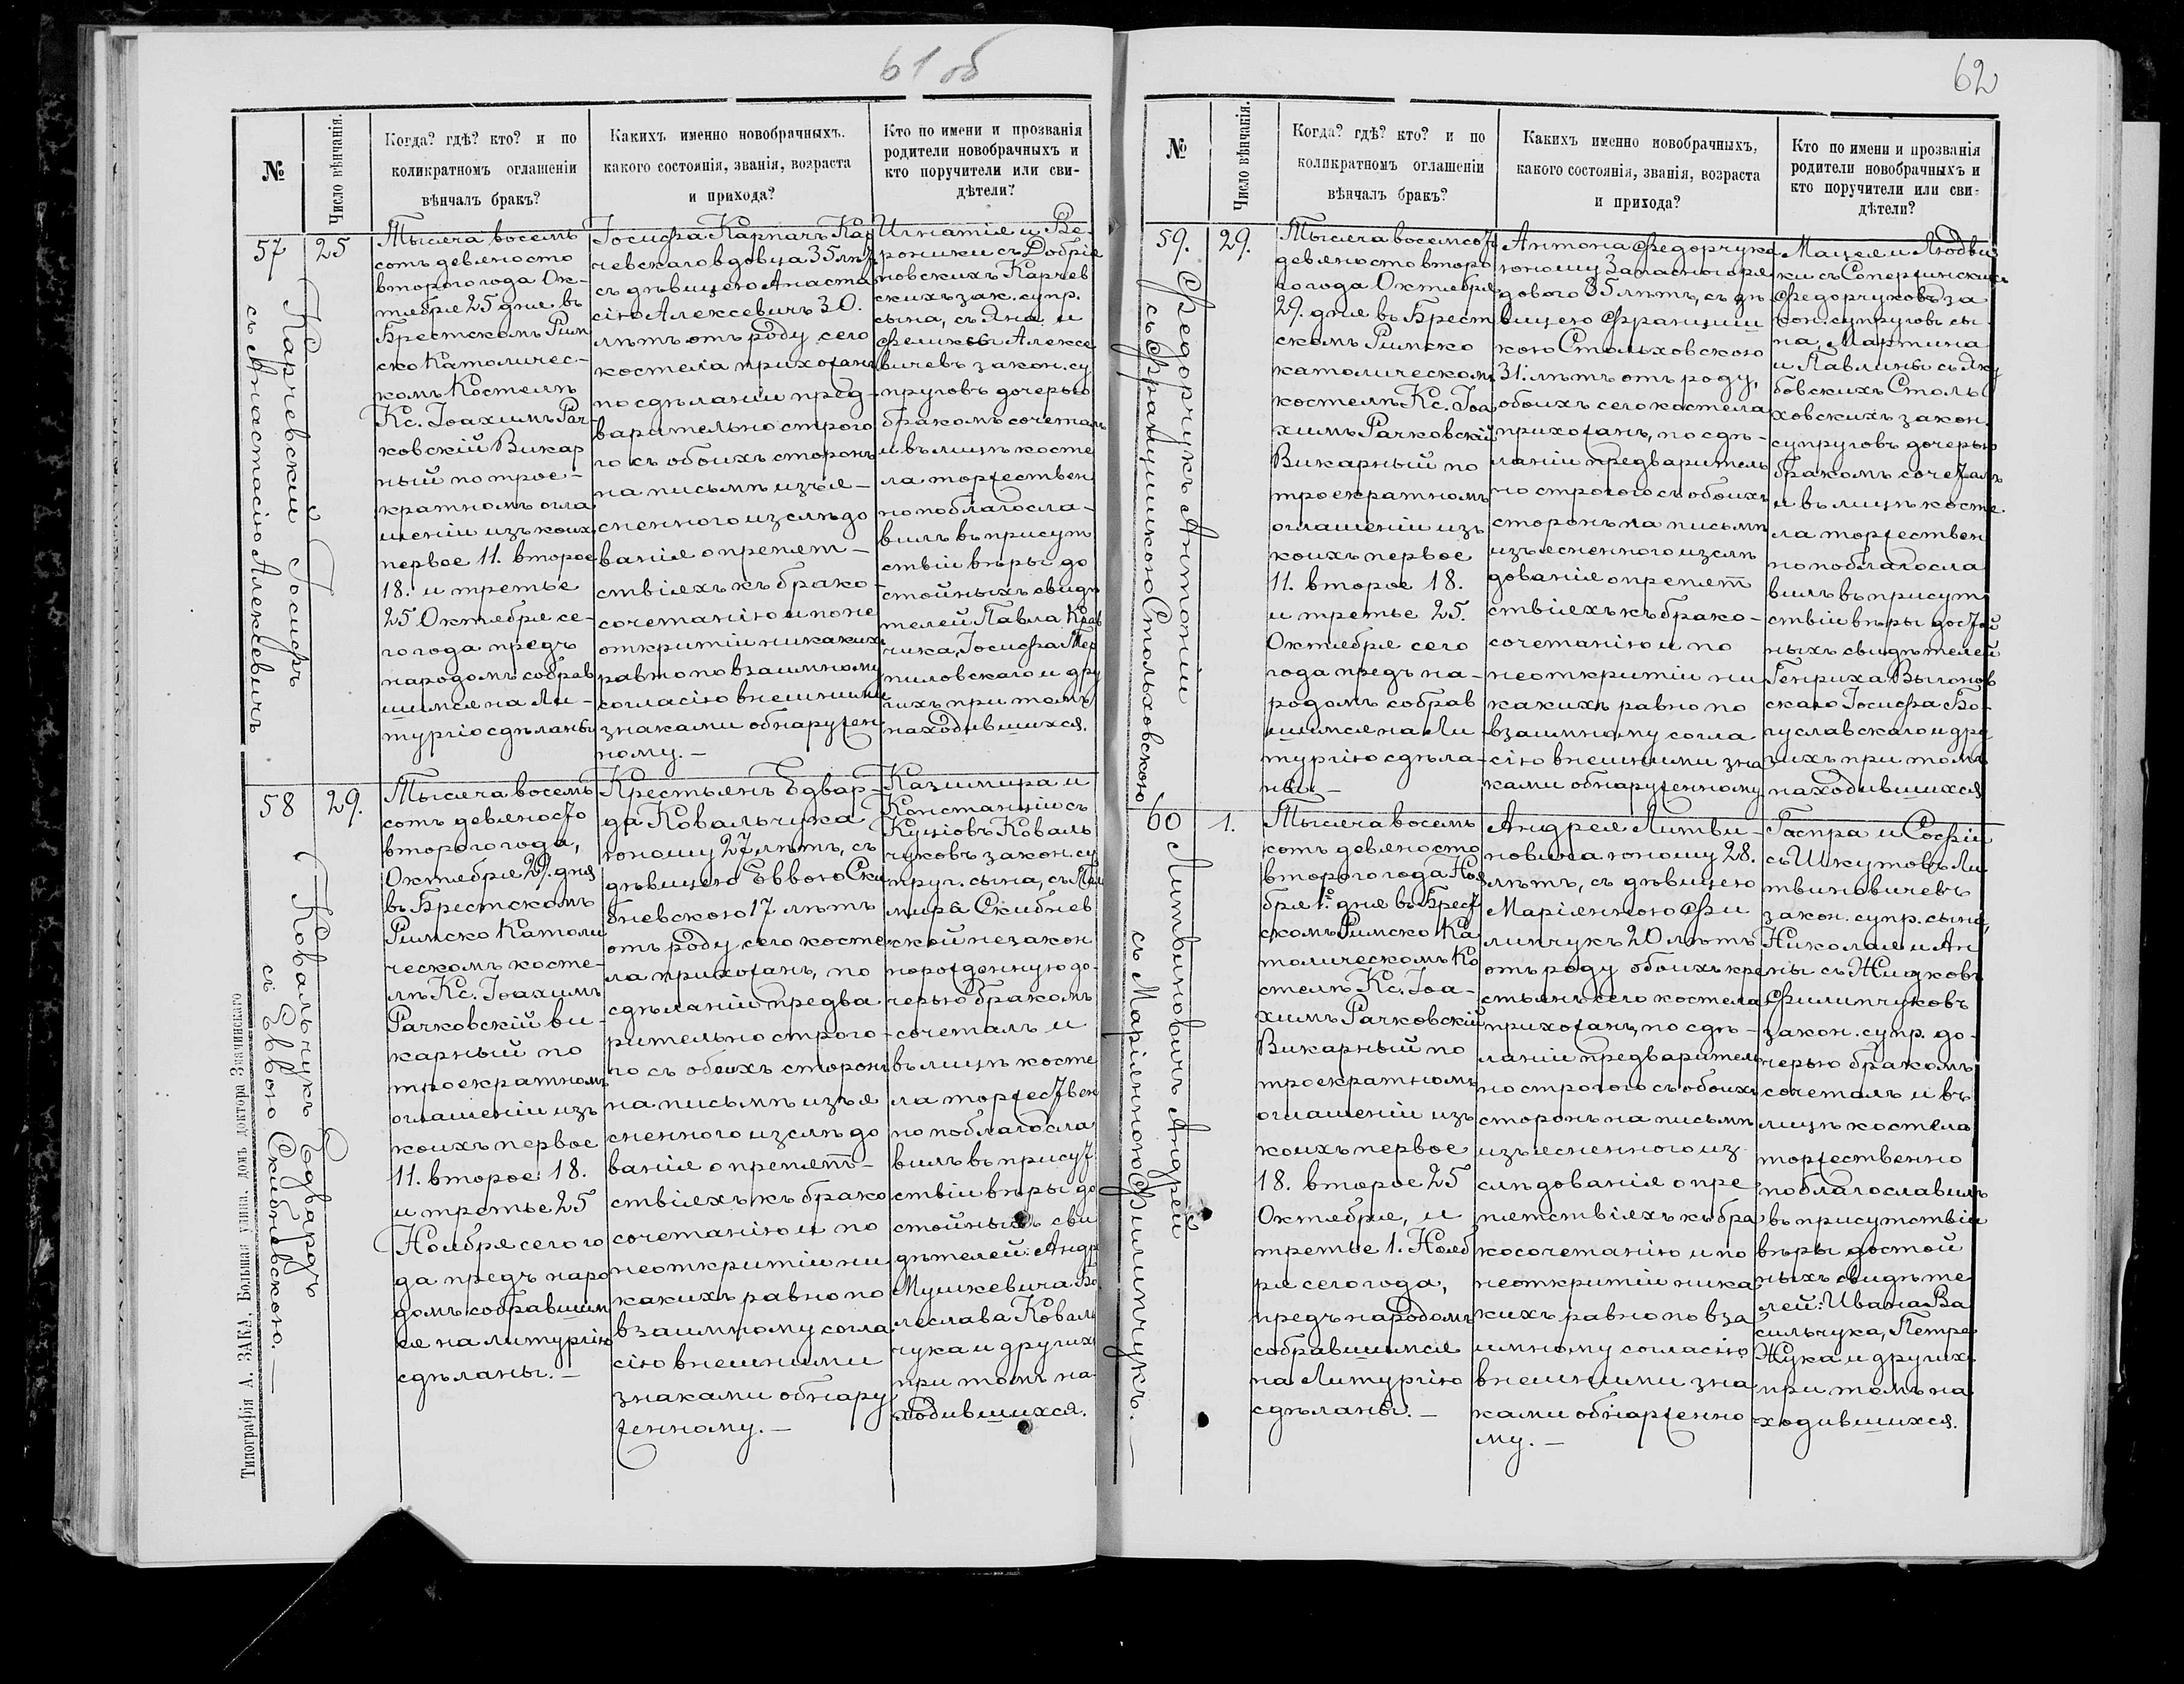 61 об
№
Число вѣнчанія.
Когда? гдѣ? кто? и по
коликратномъ оглашеніи
вѣнчалъ бракъ?
Какихъ именно новобрачныхъ.
какого состоянія, званія, возраста
и прихода?
Кто по имени и прозванія
родители новобрачныхъ и
кто поручители или сви-
дѣтели?
57
25
Карчевскій Іосифъ
съ Анастасіею Алексевичъ
Тысяча восемь
сотъ девяносто
второго года Ок-
тября 25 дня въ
Брестскомъ Рим
ско Католичес-
комъ Костелѣ
Кс. Іоахимъ Рач-
ковскій Викар
ный по трое-
кратномъ огла
шеніи изъ коихъ
первое 11. второе
18. и третье
25 Октября се-
го года предъ
народомъ собрав
шимся на Ли-
тургію сдѣланы
Іосифа Карпачъ Кар
чевскаго вдовца 35 лѣтъ
съ дѣвицею Анаста
сіею Алексевичъ 30.
лѣтъ отъ роду сего
костела прихожанъ
по сдѣланіи пред-
варительно строго
го съ обоихъ сторонъ
на письмѣ изъя-
сненного изслѣдо
ванія о препят-
ствіяхъ къ брако-
сочетанію и по не
открытіи никакихъ
равно по взаимному
согласію внешними
знаками обнаружен
ному.-
Игнатія и Ве-
роники съ Добрія
новскихъ Карчев
скихъ зак. супр.
сына, съ Яна и
Феликсы Алексе
вичевъ закон. су
пруговъ дочерью
бракомъ сочеталъ
и въ лицѣ косте
ла торжествен
но поблагосла-
вилъ въ присут
ствіи вѣры до
стойныхъ свидѣ
телей Павла Крав
чика, Іосифа
пиловскаго и дру
гихъ при томъ
находившихся.
58
29.
Ковальчукъ Едвардъ
съ Еввою Скибневскою.-
Тысяча восемь
сотъ девяносто
второго года,
Октября 29. дня
въ Брестскомъ
Римско Католи
ческомъ косте-
лѣ Кс. Іоахимъ
Рачковскій ви-
карный по
троекратномъ
оглашеніи изъ
коихъ первое
11. второе 18.
и третье 25
Ноября сего го
да предъ наро
домъ собравшим
ся на литургію
сдѣланы.-
Крестьянъ Едвар-
да Ковальчука
юношу 27 лѣтъ, съ
дѣвицею Еввою Ски
бневскою 17 лѣтъ
отъ роду сего косте
ла прихожанъ, по
сдѣланіи предва
рительно строго-
го съ обоихъ сторонъ
на письмѣ изъя
сненного изслѣдо
ванія о препят-
ствіяхъ къ брако
сочетанію и по
неоткрытіи ни
какихъ равно по
взаимному согла
сію внешними
знаками обнару
женному.-
Казимира и
Констанціи съ
Куціовъ Коваль
чуковъ закон. су
пруг. сына, съ
Скибнев
ской незакон
норожденную до-
черью бракомъ
сочеталъ и
въ лицѣ косте
ла торжествен
но поблагосла
вилъ въ присут
ствіи вѣры до
стойныхъ сви
дѣтелей: Андр
Мушкевича Бо
леслава Коваль
чука и другихъ
при томъ на
ходившихся.
Типографія А. ЗАКА, Большая улица, домъ доктора Значинскаго
62
№
Число вѣнчанія.
Когда? гдѣ? кто? и по
коликратномъ оглашеніи
вѣнчалъ бракъ?
Какихъ именно новобрачныхъ,
какого состоянія, званія, возраста
и прихода?
Кто по имени и прозванія
родители новобрачныхъ и
кто поручители или сви-
дѣтели?
59.
29.
Федорчукъ Антоній
съ Францишкою Стольховскою
Тысяча восемсотъ
девяносто второ
го года Октября
29. дня въ Брест
скомъ Римско
католическомъ
костелѣ Кс. Іоа
химъ Рачковскій
Викарный по
троекратномъ
оглашеніи изъ
коихъ первое
11. второе 18.
и третье 25.
Октября сего
года предъ на-
родомъ собрав
шимся на Ли-
тургію сдѣла-
ны.-
Антона Федорчука
юношу Запасного ря
дового 35 лѣтъ, съ дѣ
вицею Францишк
кою Стольховскою
31. лѣтъ отъ роду,
обоихъ сего костела
прихожанъ, по сдѣ-
ланіи предваритель
но строгого съ обоихъ
сторонъ на письмѣ
изъясненного изслѣ
дованія о препят
ствіяхъ къ брако-
сочетанію и по
неоткрытіи ни
какихъ равно по
взаимному согла
сію внешними зна
ками обнаруженному
Мацея и Людви
ки съ Соперлинскихъ
Федорчуковъ за
кон. супруговъ сы
на, Мартина
и Павлины съ Яку
бовскихъ Столь
ховскихъ закон.
супруговъ дочерью
бракомъ сочеталъ
и въ лицѣ косте
ла торжествен
но поблагосла
вилъ въ присут
ствіи вѣры достой
ныхъ свидѣтелей
Генриха Выганов
скаго Іосифа Бо-
гуславскаго и дру
гихъ при томъ
находившихся
60
1.
Литвиновичъ Андрей
съ Маріянною Филипчукъ.-
Тысяча восемь
сотъ девяносто
второго года Ноя
бря 1. дня въ Брест
скомъ Римско Ка
толическомъ Ко
стелѣ Кс. Іоа-
химъ Рачковскій
Викарный по
троекратномъ
оглашеніи изъ
коихъ первое
18. второе 25
Октября, и
третье 1. Нояб
ря сего года,
предъ народомъ
собравшимся
на Литургію
сдѣланы.-
Андрея Литви-
новича юношу 28.
лѣтъ, съ дѣвицею
Маріянною Фи
липчукъ 20 лѣтъ
отъ роду обоихъ кре
стьянъ сего костела
прихожанъ, по сдѣ-
ланіи предваритель
но строгого съ обоихъ
сторонъ на письмѣ
изъясненного из
слѣдованія о пре
пятствіяхъ къ бра
косочетанію и по
неоткрытіи ника
кихъ равно по вза
имному согласію
внешними зна
ками обнарженно
му.-
Гаспра и Софіи
съ Шкутовъ Ли
твиновичевъ
закон. супр. сына,
Николая и Ан
ны съ Жидковъ
Филипчуковъ
закон. супр. до-
черью бракомъ
сочеталъ и въ
лицѣ костела
торжественно
поблагославилъ
въ присутствіи
вѣры достой
ныхъ свидѣте
лей: Ивана Ва
сильчука, Петра
Жука и другихъ
при томъ на
ходившихся.